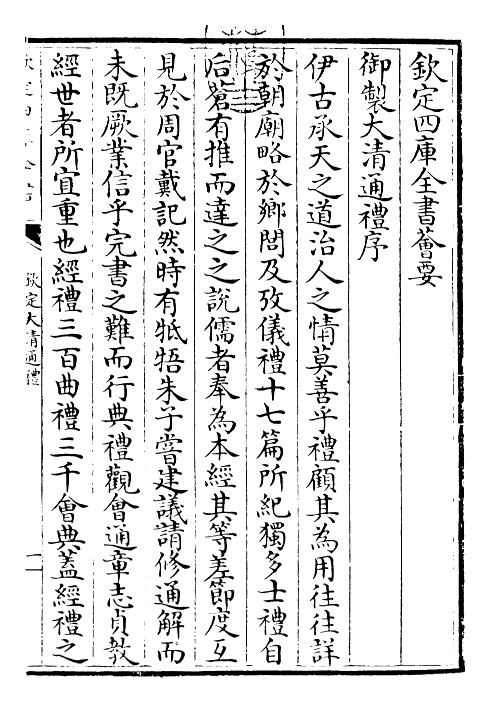 欽定四庫全書薈要
御製大清通禮序
伊古承天之道治人之情莫善乎禮顧其為用往往詳
於朝廟略於鄉閭及攷儀禮十七篇所紀獨多士禮自
后蒼有推而達之之說儒者奉為本經其等差節度互
見於周官戴記然時有牴牾朱子嘗建議請修通解而
未既厥業信乎完書之難而行典禮觀會通章志貞教
經世者所宜重也經禮三百曲禮三千會典蓋經禮之
欽定大清通禮
一